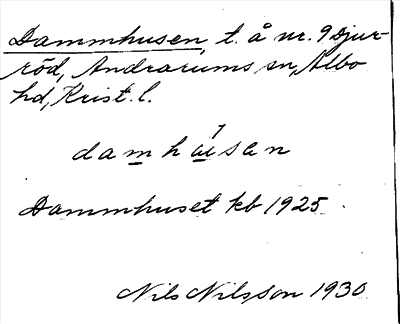 Dammhusen, t. å nr. 9 Djur-
röd, Andrarums sn, Albo
hd, Krist. l.
damhúsen
Dammhuset kb 1925.
Nils Nilsson 1930